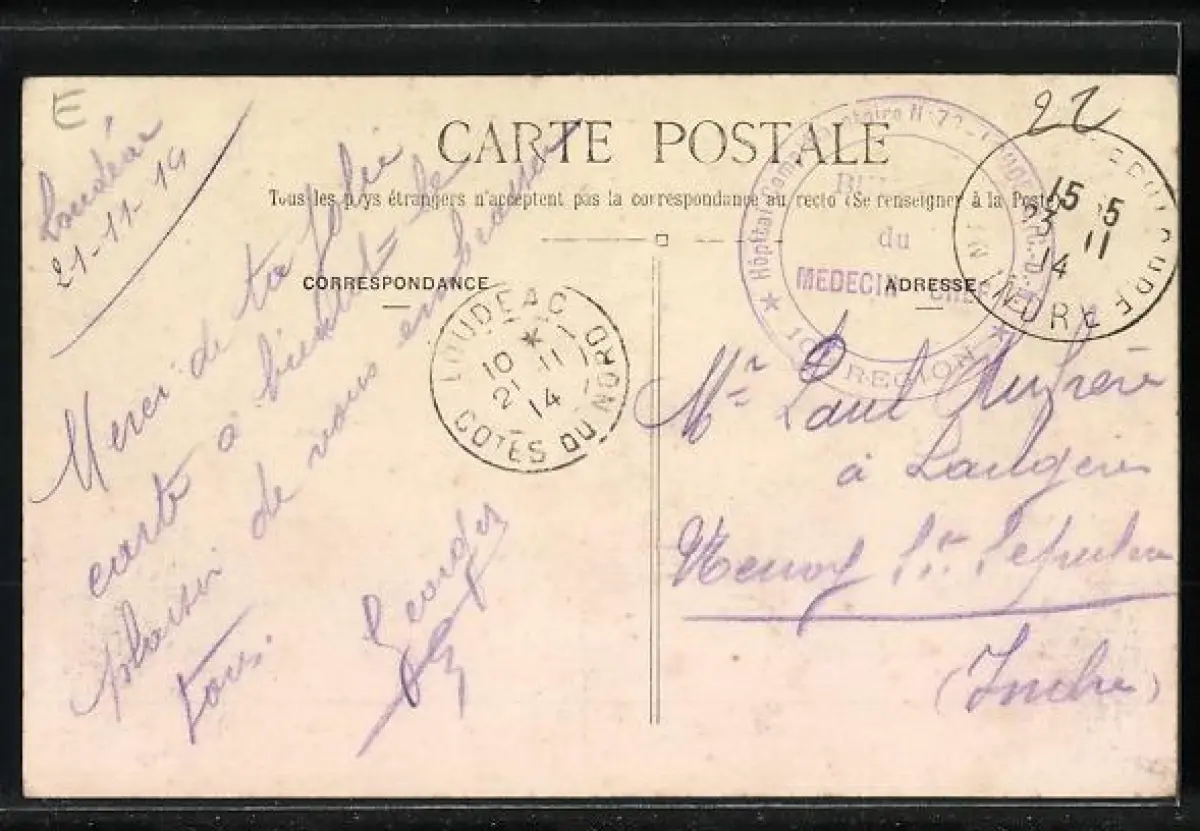 E
22
CARTE POSTALE
Tous les pays étrangers n'acceptent pas la correspondance au recto (Se renseigner à la Poste)
CORRESPONDANCE
ADRESSE
Loudéac
21-11-14
Merci de ta jolie
carte à bientôt le
plaisir de vous embrasser
tous.
Georges
LOUDEAC
10
21 11
14
COTES DU NORD
Hôpital
du
MEDECIN CHEF
REGION
15
23 11
14
INDRE
Mr Paul
à
Neuvy St Sepulcre
(Indre)